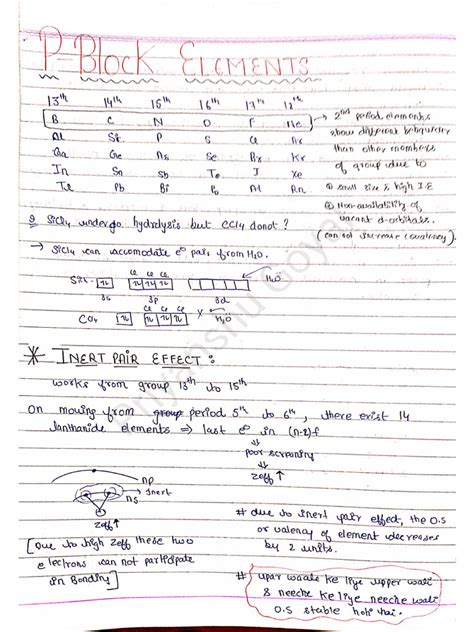 P-BLOCK ELEMENTS
13th 14th 15th 16th 17th
B C N O F Ne → 2nd period elements
Al Si P S Cl Ar show different behaviour
Ga Ge As Se Br Kr than other members
In Sn Sb Te I Xe of group due to
Pb Bi Po At Rn ① small size & high I.E
② Non-availability of
vacant d-orbitals.
Q SiCl4 undergo hydrolysis but CCl4 donot? (can not increase covalency)
→ SiCl4 can accomodate e⊖ pair from H2O.
Cl Cl Cl H2Ö
3s 3p 3d
Cl Cl Cl
CCl4 X H2Ö
* INERT PAIR EFFECT:
works from group 13th to 15th
On moving from group period 5th to 6th, there exist 14
lanthanide elements ⇒ last e⊖ in (n-2)f
⇓
poor screening
⇓
Zeff ↑
np
→ Inert
ns
Zeff ↑
# due to inert pair effect, the O.S
or valency of element decreases
by 2 units.
[Due to high Zeff these two
electrons can not participate
in Bonding]
# upar waalo ke liye upper wali
& neeche ke liye neeche wali
O.S stable hoti hai.
Priyanshu Goyal